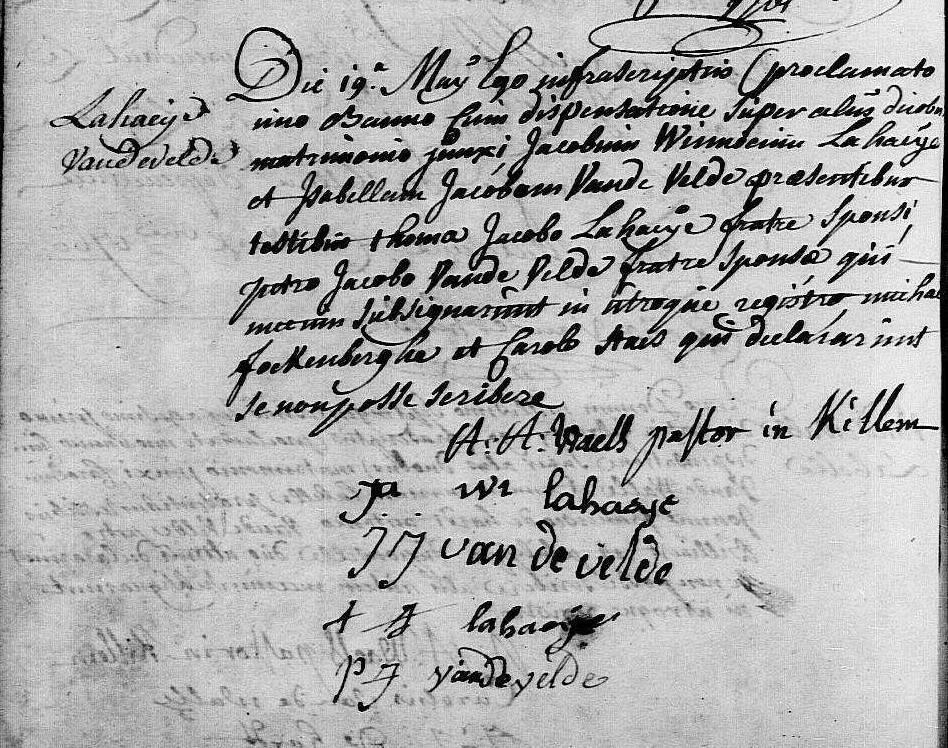 Lahaeije
Vandevelde
Die 19.a May Ego infrascriptus (proclamato
uno Banno cum dispensatione super aliis duobus
matrimonio junxi Jacobum Winnocum Lahaeÿe
et Isabellam Jacobam Vande Velde præsentibus
testibus thoma Jacobo Lahaeÿe fratre sponsi,
petro Jacobo Vande Velde fratre sponsæ qui
mecum subsignarunt in utroque registro
fockenberghe et Carolo Staes qui declararunt
se non posse scribere
A: A: Waells pastor in Killem
ja wi lahaeye
JJ van de velde
t J lahaeije
pJ vandevelde